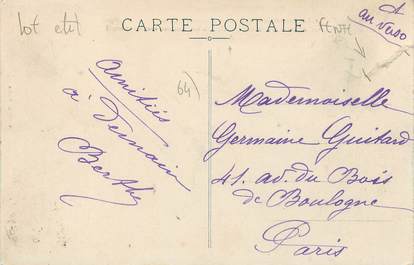 CARTE POSTALE
au verso
64
Amitiés
à Demain
Berthe
Mademoiselle
Germaine Guitard
41. av. du Bois
de Boulogne
Paris